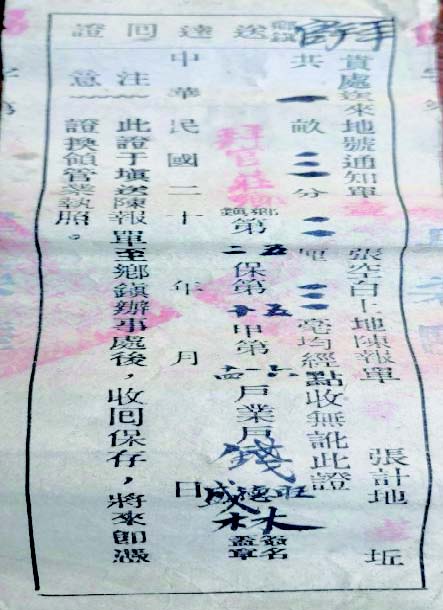 鄉鎮送達回證
貴處送來地號通知單 張空白土地陳報單 張計地 坵
共 畝 分 厘 毫均經點收無訛此證
鄉鎮第 保第 甲第 戶業戶 錢 林 簽名蓋章
中華民國二十 年 月 日
注意
此證于填送陳報單至鄉鎮辦事處後，收回保存，將來即憑
證換領管業執照。